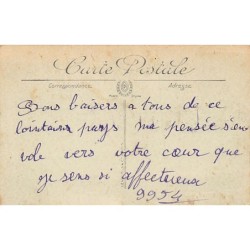 Carte Postale
Correspondance
Adresse
Bons baisers a tous de ce
lointain pays ma pensée s'en
vole vers votre cœur que
je sens si affectueux
9954